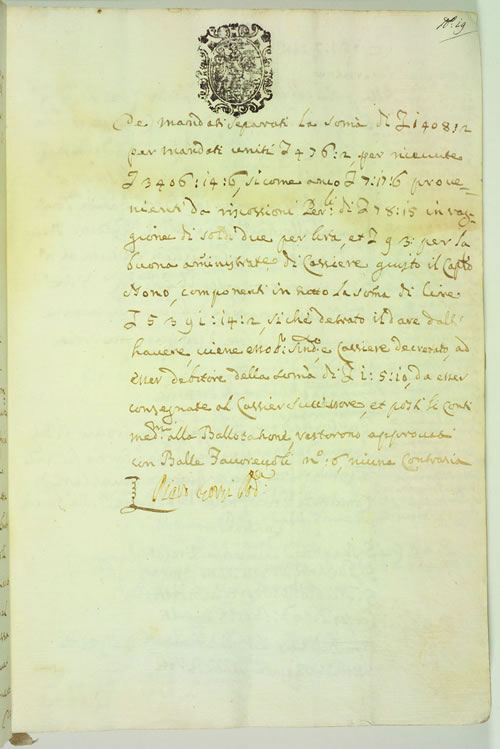 N.º 19
De mandati separati la somã di L 1408:2
per mandati uniti L 476:2, per riceuute
L 3406:14:6, si come anco L 7:17:6 proue-
nienti da riscossioni di L 78:15 in rag-
gione di soldi due per lira, et L 93: per la
buona aministrat.ne di Cassiere giusto il Capto
Nono, componenti in tutto la somã di lire
L 5391:14:2, si che detrato il dare dall'
hauere, uiene e Cassiere decrorato, ad
esser debitore della somã di L 1:5:19, da esser
consegnate al Cassier Successore, et posti li Conti
med.mi alla Ballotatione, restorono approuati
con Balle Fauoreuoli n.º:6, niuna Contraria